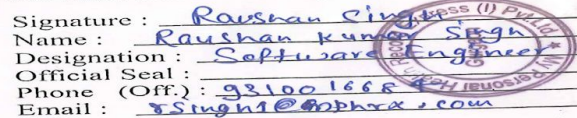 Signature : Raushan Singh
Name : Raushan Kumar Singh
Designation : Software Engineer
Official Seal :
Phone (Off.) : 9310016684
Email :